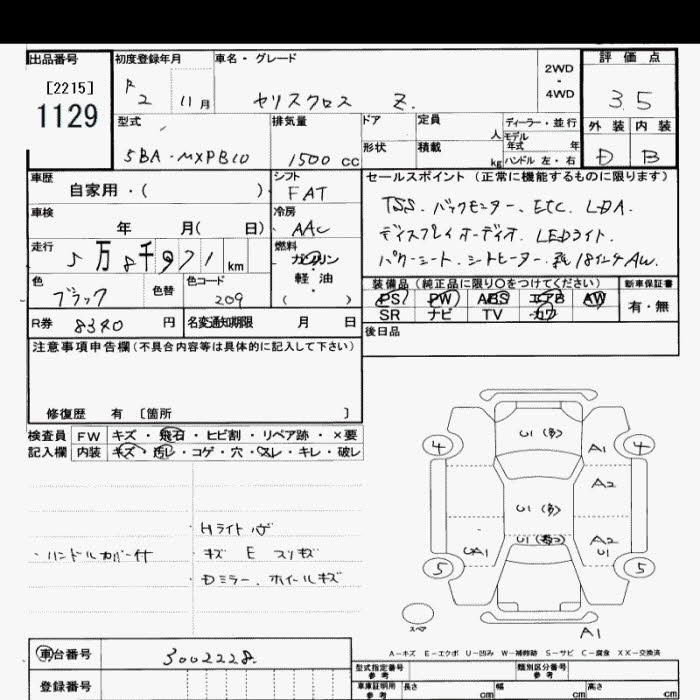 出品番号 初度登録年月 車名・グレード 評価点
[2215] R 2 11月 ヤリスクロス Z. 2WD・4WD 3.5
1129
型式 排気量 ドア 定員 人 ディーラー・並行 外装 内装
5BA・MXPB10 1500 cc 形状 積載 kg モデル年式 年 D B
ハンドル 左・右
車歴 シフト セールスポイント (正常に機能するものに限ります)
自家用・( ) FAT TSS. バックモニター. ETC. LDA.
車検 冷房 ディスプレイオーディオ. LEDライト.
年 月( 日) AAC パワーシート. シートヒーター. 18インチAW.
走行 燃料
5万8千971km ガソリン・軽油・( )
色 色替 色コード 装備品 (純正品に限り○をつけてください) 新車保証書
ブラック 209 PS PW ABS エアB AW 有・無
SR ナビ TV カワ
R券 8340 円 名変通知期限 月 日 後日品
注意事項申告欄(不具合内容等は具体的に記入して下さい)
修復歴 有 [箇所 ]
検査員 FW キズ・飛石・ヒビ割・リペア跡・×要
記入欄 内装 キズ・汚レ・コゲ・穴・スレ・キレ・破レ
U1(多)
4 A1 4
A2
U1(多)
Hライト
・ハンドルカバー付 キズ E スリキズ U1 A2
UA1 U1
Dミラー. ホイールキズ 5 5
スペア
A1
A-キズ E-エクボ U-凹み W-補修跡 S-サビ C-腐食 XX-交換済
車台番号 3002228. 型式指定番号 参考 類別区分番号 参考
登録番号 車庫証明用 参考 長さ cm 幅 cm 高さ cm